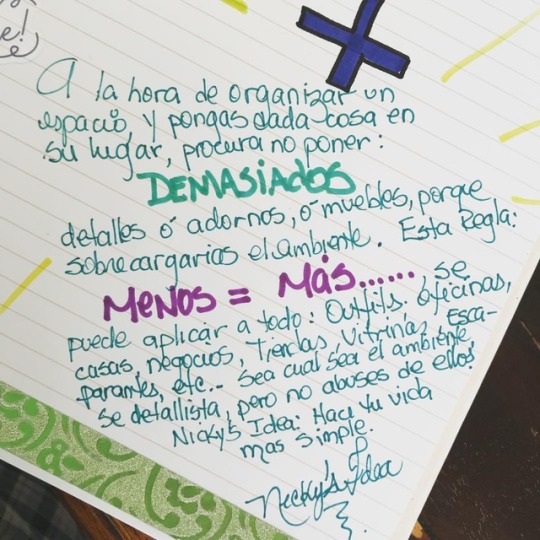 e!
A la hora de organizar un
espacio y pongas cada cosa en
su lugar, procura no poner:
DEMASIADOS
detalles ó adornos, ó muebles, porque
sobrecargarias el ambiente. Esta Regla:
MENOS = MÁS......, se
puede aplicar a todo: Outfits, oficinas,
casas, negocios, Tiendas, Vitrinas, Esca-
parantes, etc... Sea cual sea el ambiente,
se detallista, pero no abuses de ellos!
Nicky's Idea: Hace tu vida
mas simple.
Nicky's Idea